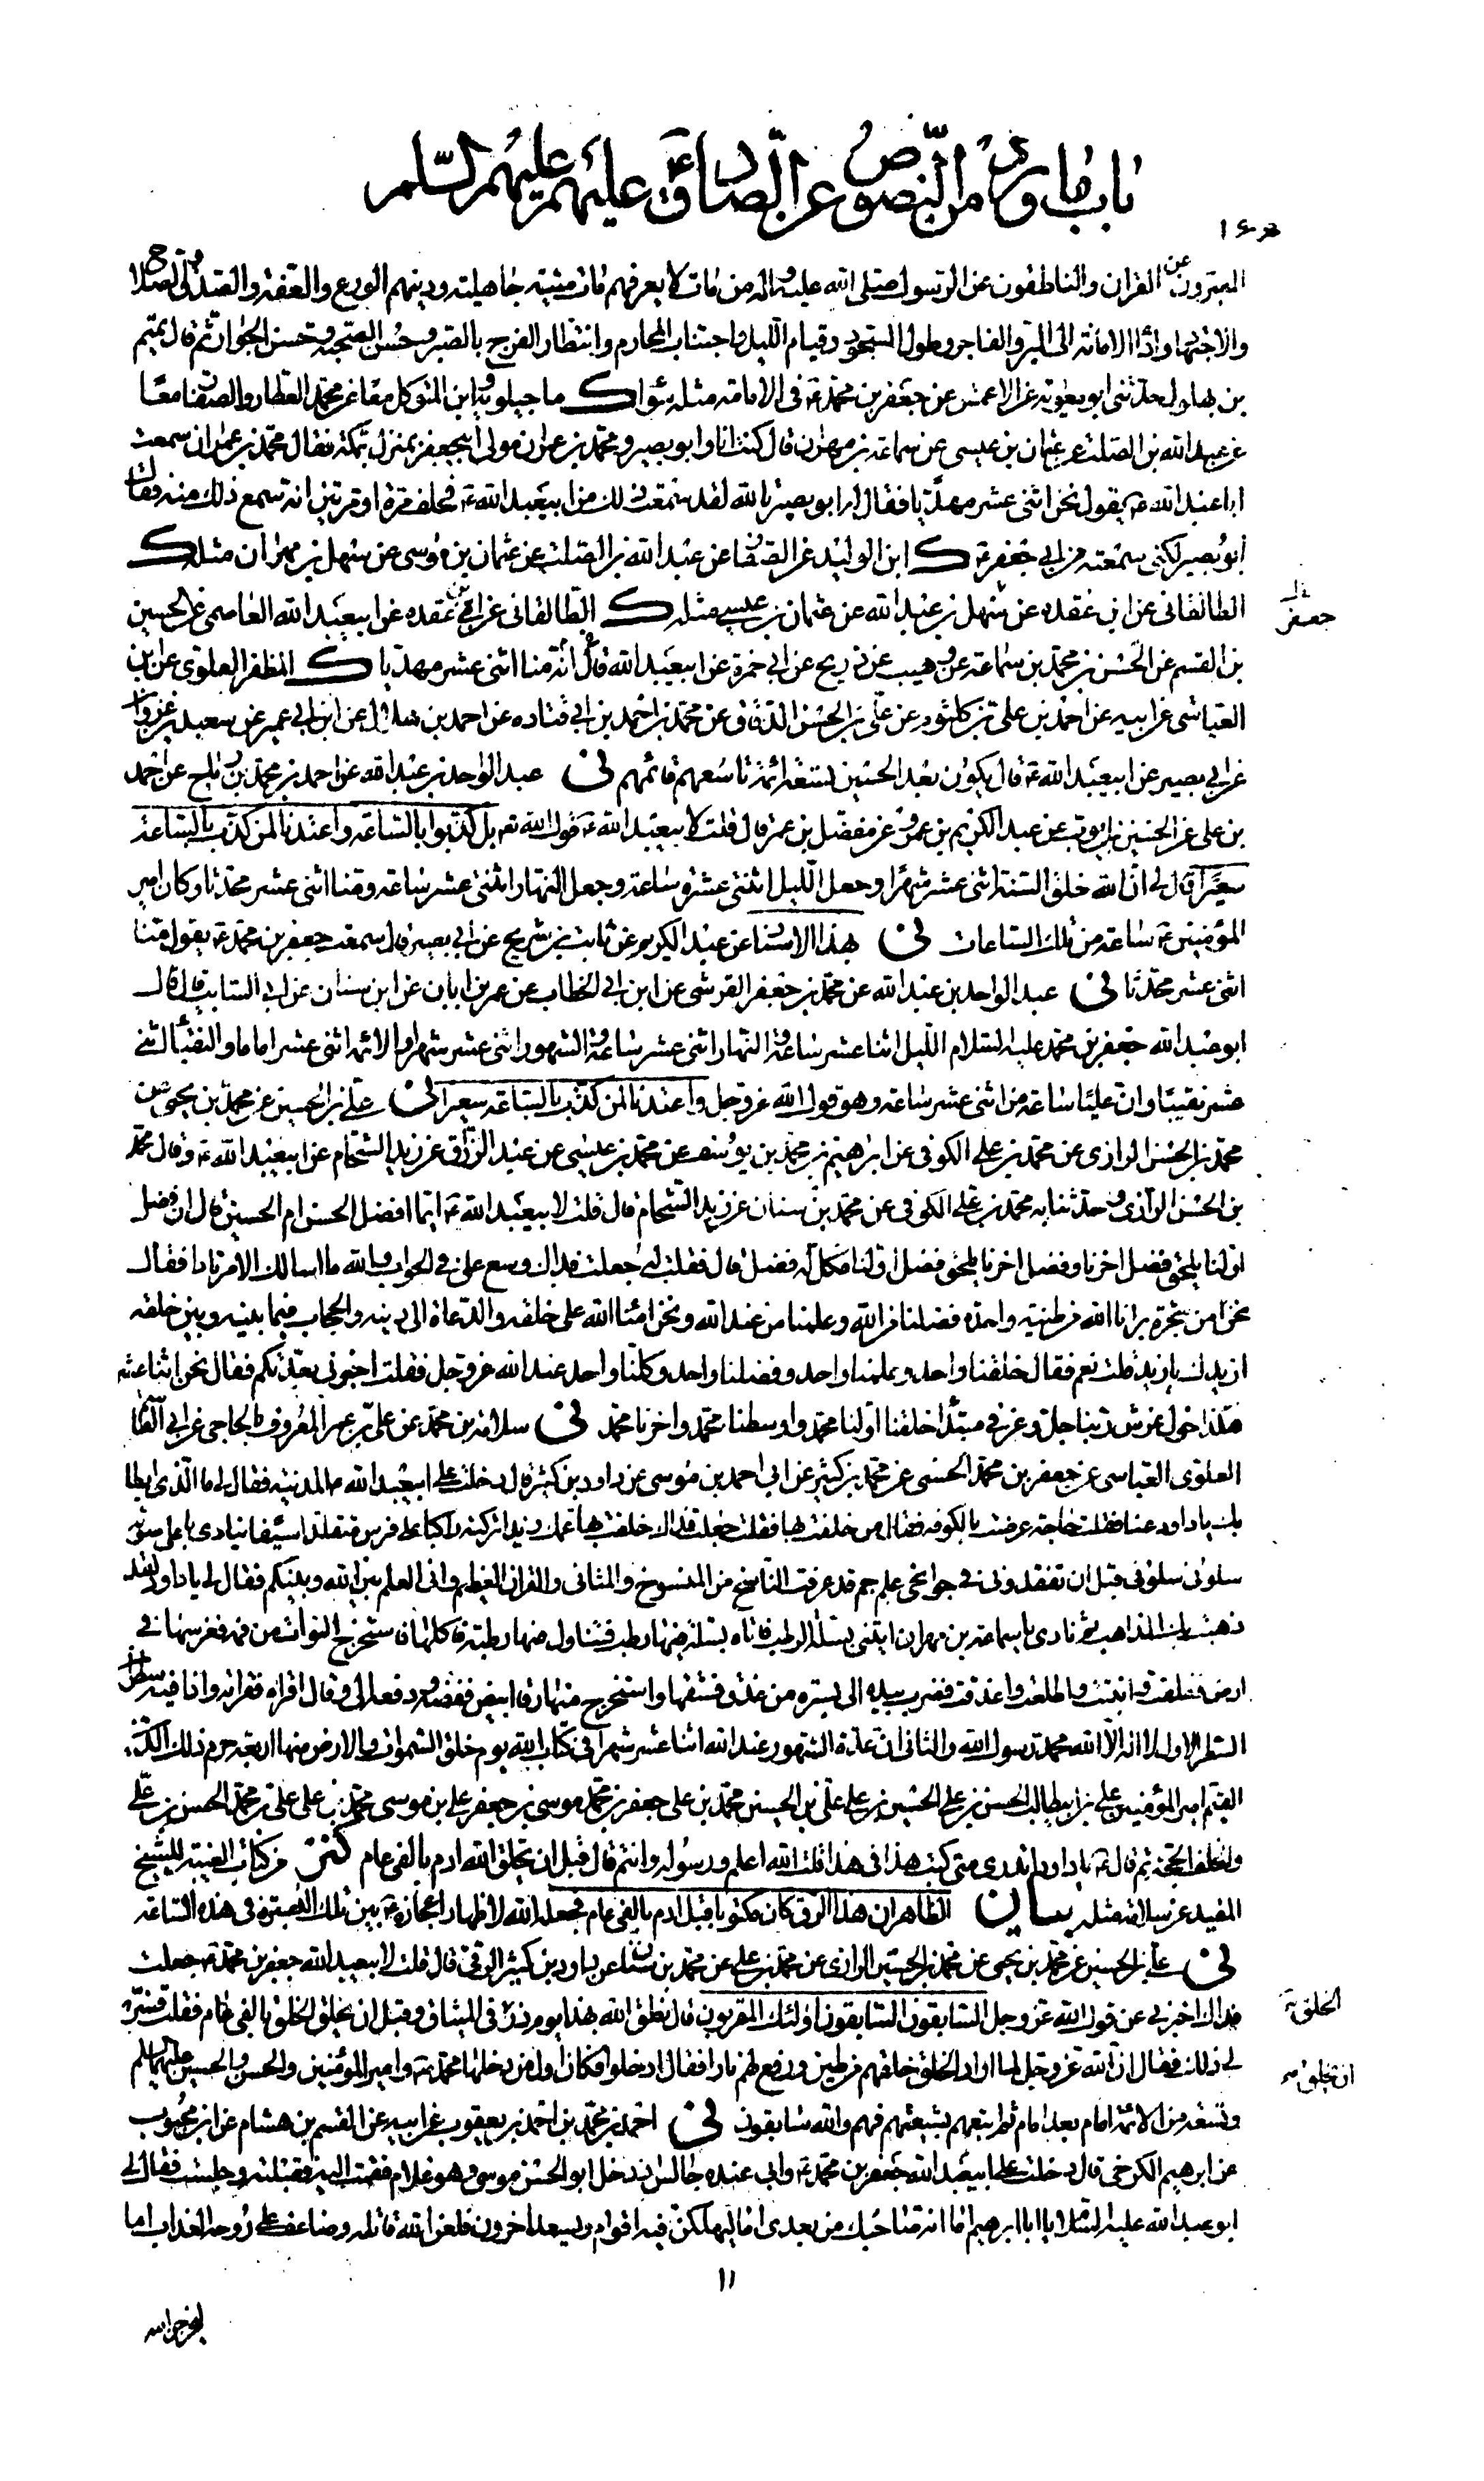 باب ما ورد من النصوص عن الصادق عليهم عليهم السلم
١٤٠
المعبرون عن القران والناطقون عن الرسول صلى الله عليه واله من مات لا يعرفهم مات ميتة جاهلية ودينهم الورع والعفة والصدق والصلاح
والاجتهاد واداء الامانة الى البر والفاجر وطول السجود وقيام الليل واجتناب المحارم وانتظار الفرج بالصبر وحسن الصحبة وحسن الجوار ثم قال تميم
بن بهلول حدثنى ابو معوية عن الاعمش عن جعفر بن محمد ع فى الامامة مثله سواء ك ماجيلويه وابن المتوكل معا عن محمد العطار والصفار معا
عن عبد الله بن الصلت عن عثمان بن عيسى عن سماعة بن مهران قال كنت انا وابو بصير ومحمد بن عمران مولى ابيجعفر بمنزل بمكة فقال محمد بن عمران سمعت
ابا عبد الله ع يقول نحن اثنى عشر مهديا فقال له ابو بصير تالله لقد سمعت ذلك من ابيعبد الله ع فحلف مرة او مرتين انه سمع ذلك منه فقال
ابو بصير لكنى سمعته من ابي جعفر ع ك ابن الوليد عن الصفار عن عبد الله بن الصلت عن عثمان بن موسى عن سهل بن مهران مثله ك
الطالقانى عن ابن عقده عن سهل بن عبد الله عن عثمان بن عيسى مثله ك الطالقانى عن ابن عقده عن ابيعبد الله العاصمى عن الحسين
جعفر
بن القسم عن الحسن بن محمد بن سماعة عن وهيب عن ذريح عن ابي حمزة عن ابيعبد الله ع قال انه منا اثنى عشر مهديا ك المظفر العلوى عن ابن
العياشى عن ابيه عن احمد بن على بن كلثوم عن على بن الحسن الدقاق عن محمد بن احمد بن ابي قتاده عن احمد بن هلال عن ابن ابي عمير عن سعيد بن غزوان
عن ابي بصير عن ابيعبد الله ع قال يكون بعد الحسين تسعة ائمة تاسعهم قائمهم نى عبد الواحد بن عبد الله عن احمد بن محمد بن رباح عن احمد
بن على عن الحسين بن ايوب عن عبد الكريم بن عمرو عن مفضل بن عمر قال قلت لابيعبد الله ع قول الله تع بل كذبوا بالساعة واعتدنا لمن كذب بالساعة
سعيرا قال لى ان الله خلق السنة اثنى عشر شهرا وجعل الليل اثنتى عشرة ساعة وجعل النهار اثنتى عشر ساعة ومنا اثنى عشر محدثا وكان امير
المؤمنين ع ساعة من تلك الساعات نى بهذا الاسناد عن عبد الكريم عن ثابت بن شريح عن ابي بصير قال سمعت جعفر بن محمد ع يقول منا
اثنى عشر محدثا نى عبد الواحد بن عبد الله عن محمد بن جعفر القرشى عن ابن ابي الخطاب عن عمر بن ابان عن ابن سنان عن ابي السايب قال قال
ابو عبد الله جعفر بن محمد عليه السلام الليل اثنا عشر ساعة والنهار اثنى عشر ساعة والشهور اثنى عشر شهرا والائمة اثنى عشر اماما والنقباء اثنى
عشر نقيبا وان عليا ساعة من اثنى عشر ساعة وهو قول الله عز وجل واعتدنا لمن كذب بالساعة سعيرا نى على بن الحسين عن محمد بن يحيى عن
محمد بن الحسن الرازى عن محمد بن على الكوفى عن ابرهيم بن محمد بن يوسف عن محمد بن عيسى عن عبد الرزاق عن زيد الشحام عن ابيعبد الله ع وقال محمد
بن الحسن الرازى وحدثنا به محمد بن على الكوفى عن محمد بن سنان عن زيد الشحام قال قلت لابيعبد الله ع ايما افضل الحسن ام الحسين قال ان فضل
اولنا يلحق فضل اخرنا وفضل اخرنا يلحق فضل اولنا فكل له فضل قال فقلت له جعلت فداك وسع على فى الجواب والله ما اسالك الا مرتادا فقال
نحن من شجرة برانا الله من طينة واحدة فضلنا من الله وعلمنا من عند الله ونحن امناء الله على خلقه والدعاة الى دينه والحجاب فيما بينه وبين خلقه
ازيدك يا زيد قلت نعم فقال خلقنا واحد وعلمنا واحد وفضلنا واحد وكلنا واحد عند الله عز وجل فقلت اخبرنى بعدتكم فقال نحن اثنا عشر
هكذا حول عرش ربنا جل وعز فى مبتدا خلقنا اولنا محمد واوسطنا محمد واخرنا محمد نى سلامة بن محمد عن على بن عمر المعروف بالحاجى عن ابي القاسم
العلوى العباسى عن جعفر بن محمد الحسنى عن محمد بن كثير عن ابي احمد بن موسى عن داود بن كثير قال دخلت على ابيعبد الله ع بالمدينة فقال لى ما الذى ابطا
بك يا داود عنا فقلت حاجة عرضت بالكوفة فقال من خلفت بها فقلت جعلت فداك خلفت بها عمك زيدا تركته راكبا على فرس متقلدا سيفا ينادى باعلى صوته
سلونى سلونى قبل ان تفقدونى فى جوانحى علم جم قد عرفت الناسخ من المنسوخ والمثانى والقران العظيم وانى العلم بين الله وبينكم فقال لى يا داود لقد
ذهبت بك المذاهب ثم نادى يا سماعة بن مهران ايتنى بسلة الرطب فاتاه بسلة فيها رطب فتناول منها رطبة فاكلها واستخرج النواة من فمه فغرسها فى
ارض ففلقت وانبتت واطلعت واعذقت فضرب بيده الى بسرة من عذق فشقها واستخرج منها رقا ابيض ففضه ودفعه الى وقال اقراه فقراته واذا فيه سطران
السطر الاول لا اله الا الله محمد رسول الله والثانى ان عدة الشهور عند الله اثنا عشر شهرا فى كتاب الله يوم خلق السموات والارض منها اربعة حرم ذلك الدين
القيم امير المؤمنين على بن ابيطالب الحسن بن على الحسين بن على على بن الحسين محمد بن على جعفر بن محمد موسى بن جعفر على بن موسى محمد بن على على بن محمد الحسن بن على
والخلف الحجة ثم قال ع يا داود اتدرى متى كتب هذا فى هذا قلت الله اعلم ورسوله وانتم قال قبل ان يخلق الله ادم بالفى عام كنز من كتاب الغيبة للشيخ
المفيد عن سلامة مثله بيان الظاهر ان هذا الرق كان مكتوبا قبل ادم بالفى عام فجعله الله لاظهار اعجازه ع بين تلك البسرة فى هذه الساعة
نى على بن الحسين عن محمد بن يحيى عن محمد بن الحسين الرازى عن محمد بن على عن محمد بن سنان عن داود بن كثير الرقى قال قلت لابيعبد الله جعفر بن محمد ع جعلت
فداك اخبرنى عن قول الله عز وجل السابقون السابقون اولئك المقربون قال نطق الله بهذا يوم ذرء الخلق فى الميثاق وقبل ان يخلق الخلق بالفى عام فقلت فسر
الخلق
لى ذلك فقال ان الله عز وجل لما اراد الخلق خلقهم من طين ورفع لهم نارا فقال ادخلوها فكان اول من دخلها محمد ع وامير المؤمنين والحسن والحسين عليهم السلم
ان يخلق
وتسعة من الائمة امام بعد امام ثم اتبعهم بشيعتهم فهم والله سابقون نى احمد بن محمد بن احمد بن يعقوب عن ابيه عن القسم بن هشام عن ابن محبوب
عن ابرهيم الكرخى قال دخلت على ابيعبد الله جعفر بن محمد ع وانى عنده جالس اذ دخل ابو الحسن موسى وهو غلام فقمت اليه فقبلته وجلست فقال لى
ابو عبد الله عليه السلام يا ابا ابرهيم اما انه صاحبك من بعدى اما ليهلكن فيه اقوام ويسعد اخرون فلعن الله قاتله وضاعف على روحه العذاب اما
١١
ليخرجن الله